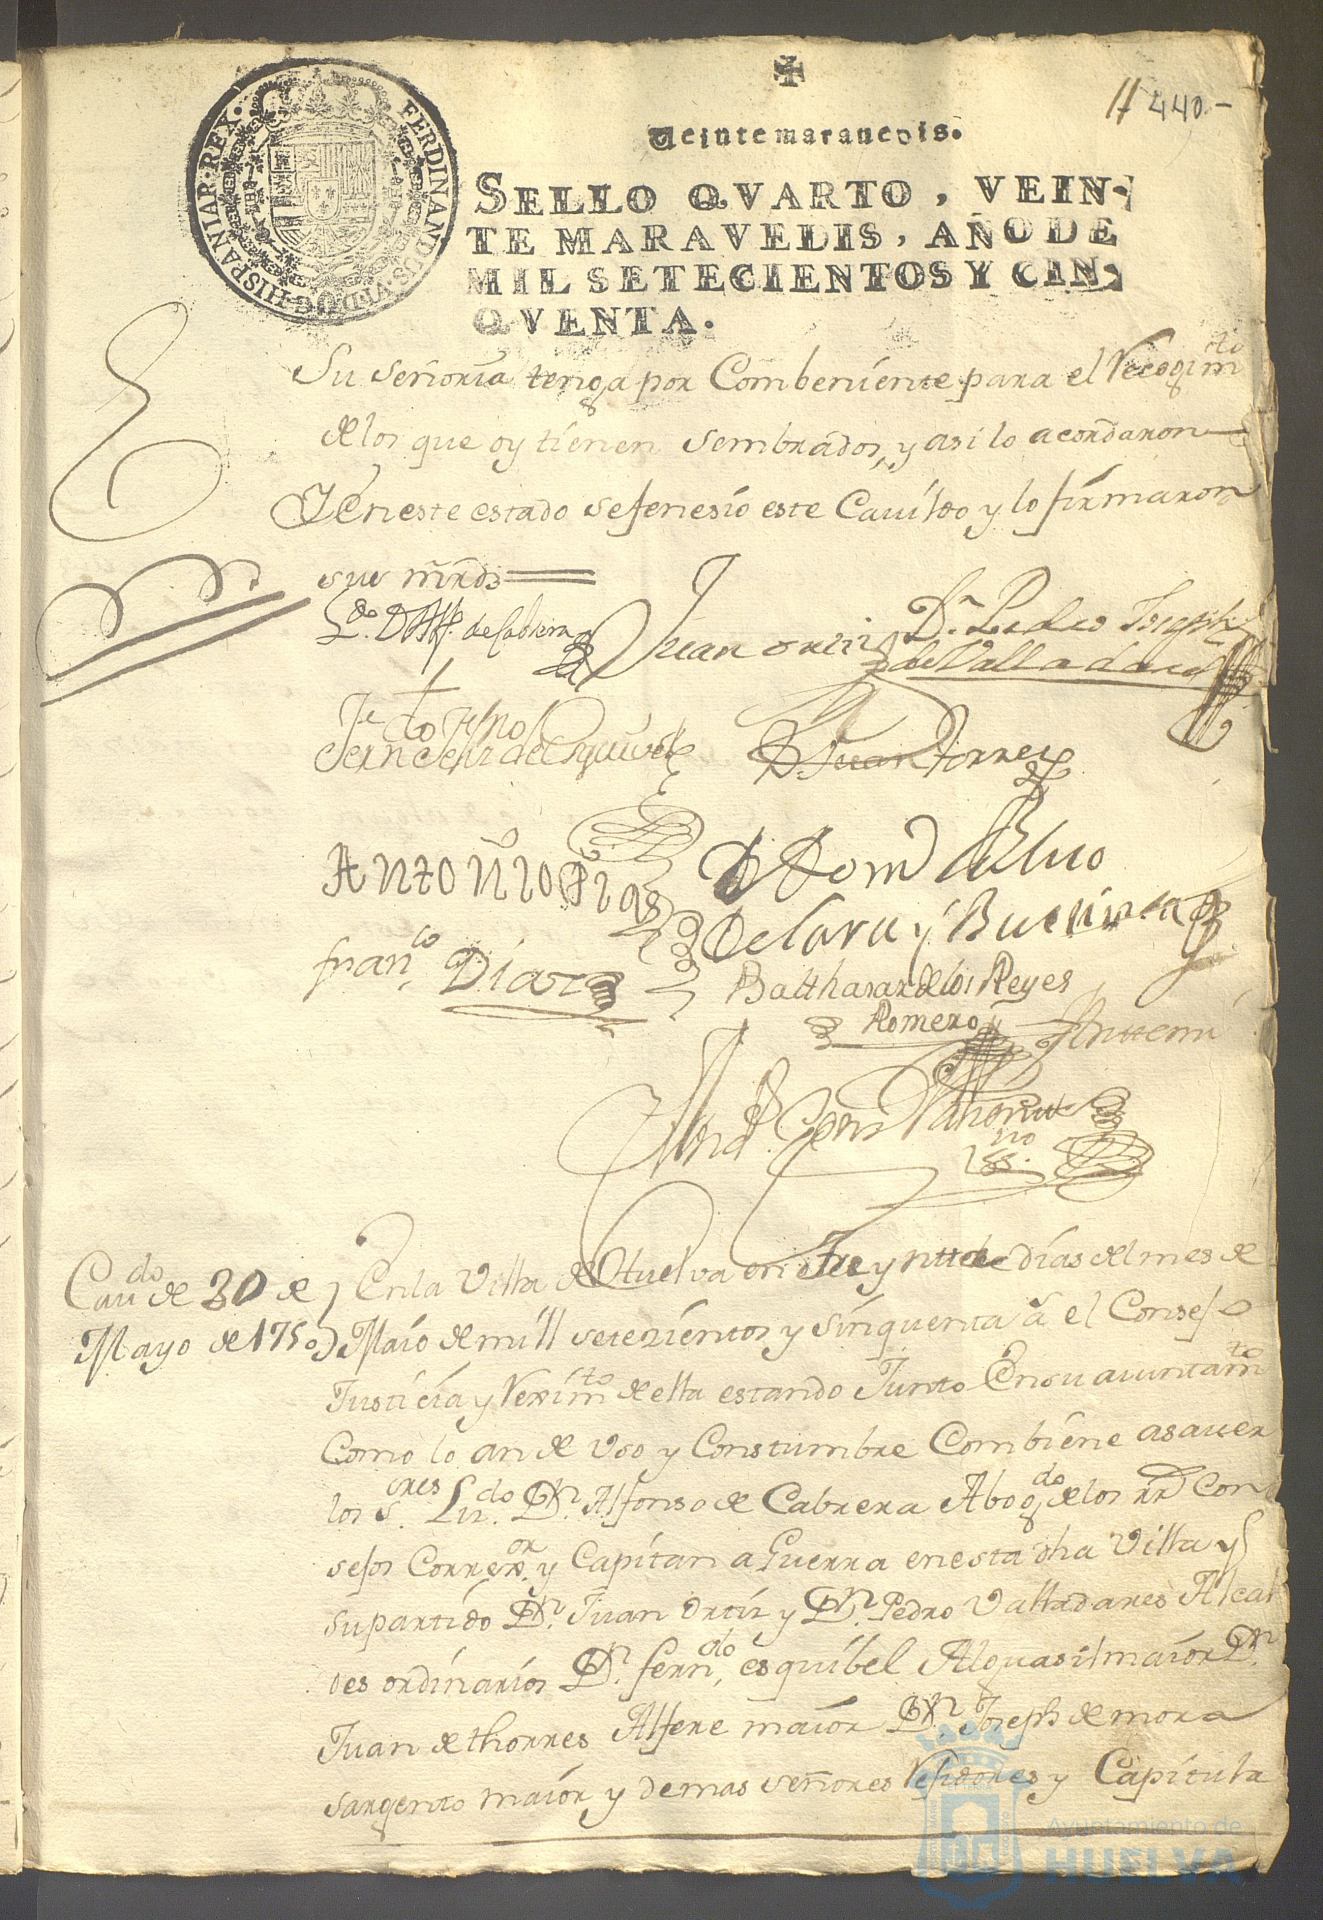 11 440.-
Veinte maravedis.
FERDINANDUS·VI·D·G·HISPANIAR·REX·
SELLO QVARTO, VEIN-
TE MARAVEDIS, AÑO DE
MIL SETECIENTOS Y CIN-
QVENTA.
Su señoria tenga por Combeniente para el Recogim.to
de los que oy tienen sembrados, y asi lo acordaron
Y en este estado se fenesio este Cavildo y lo firmaron
sus mrds
L.do D. Alf. de Cabrera Juan ortiz D.n Pedro Joseph
de Valladares
Fern de Esquivel D. Juan Torres
Antonio Dias
De Lara y Buenvia
fran.co Diaz Balthasar de los Reyes
Romero Antemi
Cav.do de 30 de En la Villa de Huelva en treynta dias del mes de
Mayo de 1750 Maio de mill setezientos y sinquenta a.s el Consejo
Justicia y Rexim.to de ella estando Junto En su aiuntam.to
Como lo an de Uso y Constumbre Combiene asaver
los S.ores Liz.do D.n Alfonso de Cabrera Abog.do de los RR Con
sejos Correx.or y Capitan a Guerra en esta dha Villa y
su partido D.n Juan Ortiz y D.n Pedro Valladares Alcal
des ordinarios D.n fern.do esquibel Alguasil maior D.n
Juan de thorres Alfere maior D.n Joseph de mora
sargento maior y demas señores Rejidores y Capitula
Ayuntamiento de
HUELVA